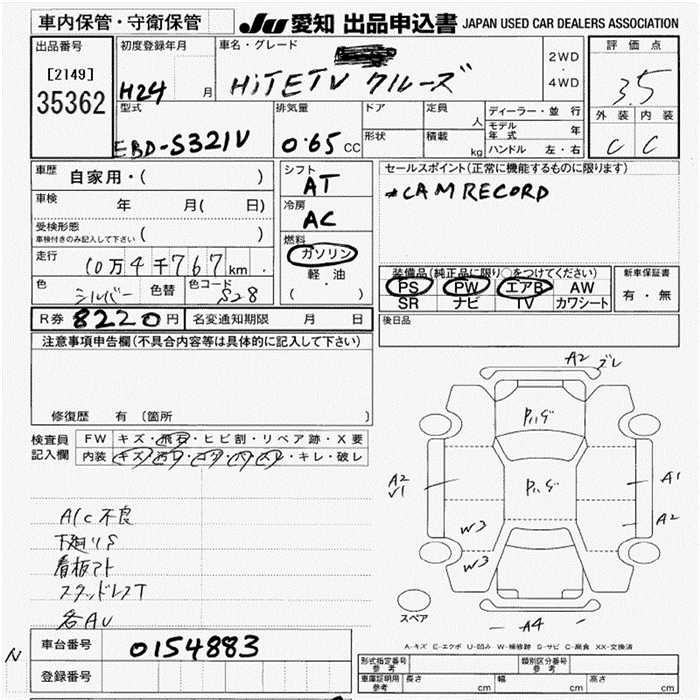 車内保管・守衛保管 JU 愛知 出品申込書 JAPAN USED CAR DEALERS ASSOCIATION
出品番号 初度登録年月 車名・グレード 2WD ・ 4WD 評価点
[2149] H24 月 HiTETV クルーズ 3.5
35362
型式 排気量 ドア 定員 人 ディーラー・並行 外装 内装
モデル年式 年
EBD-S321V 0.65 CC 形状 積載 kg ハンドル 左・右 C C
車歴 自家用・( ) シフト AT セールスポイント(正常に機能するものに限ります)
*CAM RECORD
車検 年 月( 日) 冷房 AC
受検形態
車検付きのみ記入して下さい ( ) 燃料
ガソリン
走行 10万4千767km 軽油 装備品(純正品に限り○をつけてください) 新車保証書
色 シルバー 色替 色コード S28 ( ) PS PW エアB AW 有・無
SR ナビ TV カワシート
R券 8220円 名変通知期限 月 日 後日品
注意事項申告欄(不具合内容等は具体的に記入して下さい)
修復歴 有 (箇所 )
検査員 FW キズ・飛石・ヒビ割・リペア跡・X要
記入欄 内装 キズ・汚レ・コゲ・ハガレ・キレ・破レ
A/C不良
下廻りS
各AU
A2
Pハゲ
A2 Pハゲ A1
V1
A2
W3
W3
スペア
A4
A-キズ E-エクボ U-凹み W-補修跡 S-サビ C-腐食 XX-交換済
N 車台番号 0154883
登録番号
形式指定番号 参考 類別区分番号 参考
車庫証明用 参考 長さ cm 幅 cm 高さ cm